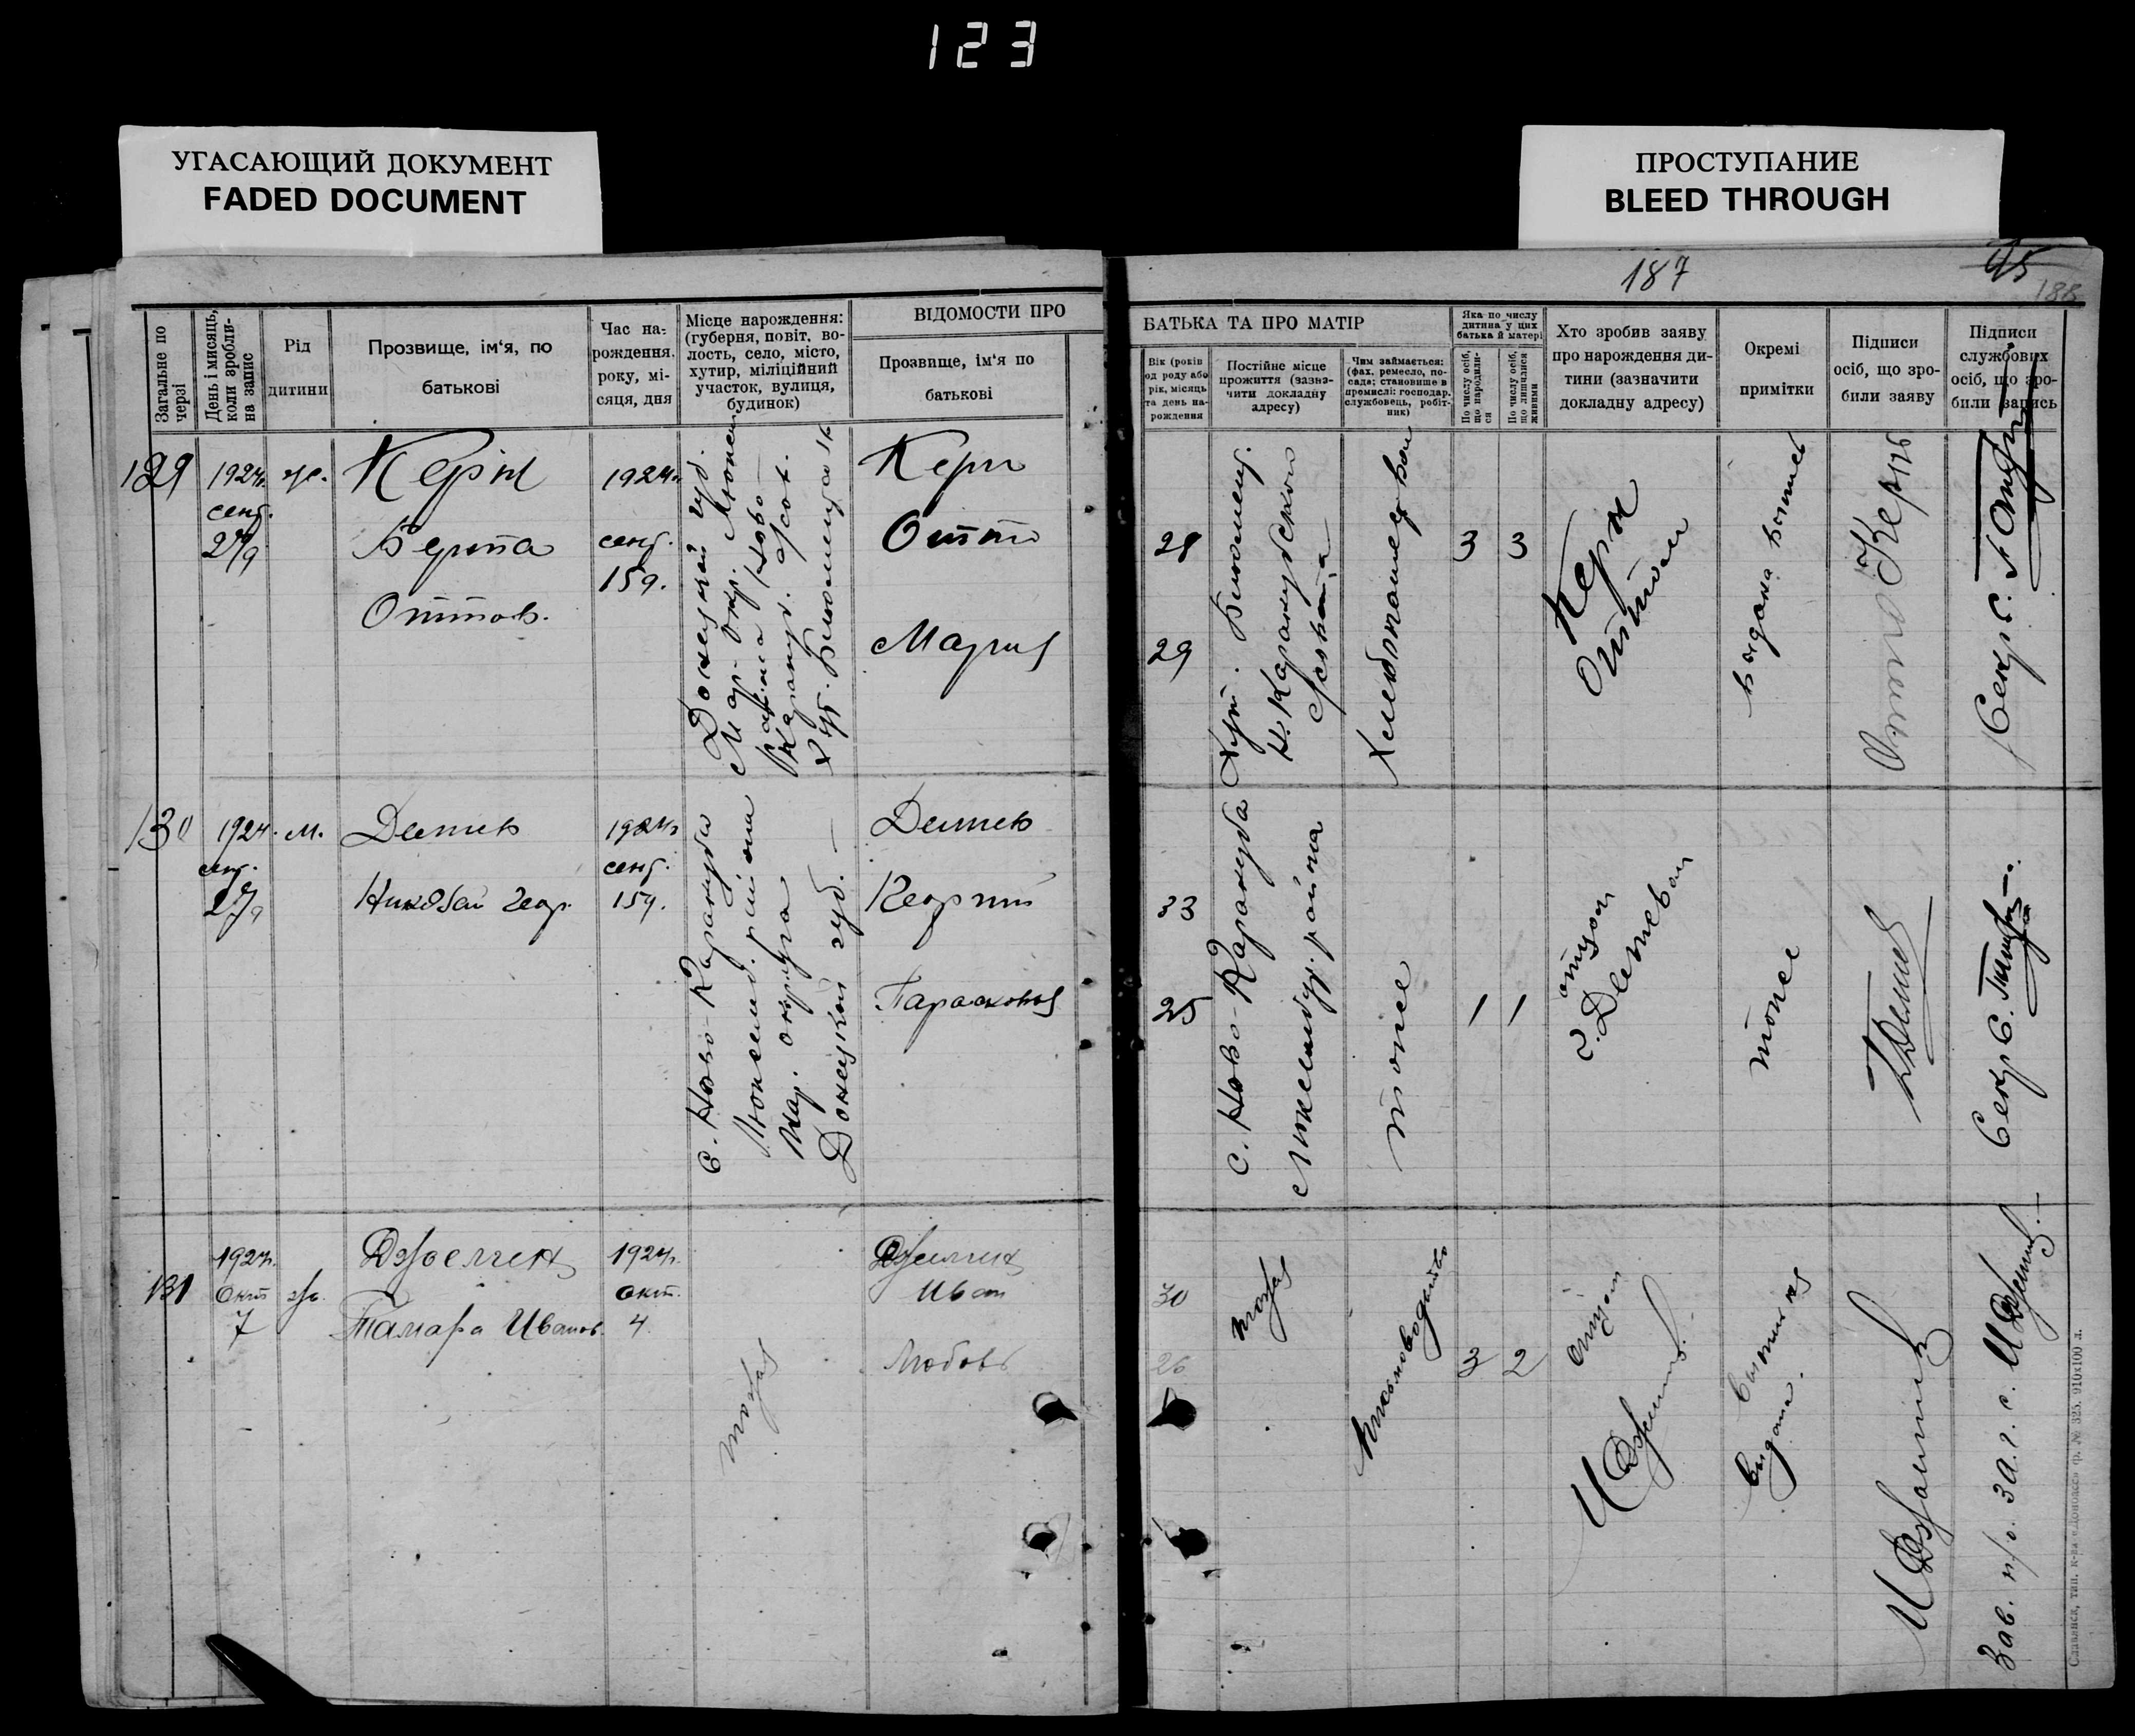 123
УГАСАЮЩИЙ ДОКУМЕНТ
FADED DOCUMENT
ПРОСТУПАНИЕ
BLEED THROUGH
187
95
188
Загальне по черзі
День і мисяць, коли зробли- на запис
Рід дитини
Прозвище, ім'я, по батькові
Час на- рождення, року, мі- сяця, дня
Місце нарождення: (губерня, повіт, во- лость, село, місто, хутир, міліційний участок, вулиця, будинок)
ВІДОМОСТИ ПРО
Прозвище, ім'я по батькові
БАТЬКА ТА ПРО МАТІР
Вік (років од роду або рік, місяць та день на- рождення
Постійне місце прожиття (зазна- чити докладну адресу)
Чим займається: (фах, ремесло, по- сада; становище в промислі: господар, службовець, робіт- ник)
Яка по числу дитина у цих батька й матері
По числу осіб, що народили- ся
По числу осіб, що лишилися живими
Хто зробив заяву про нарождення ди- тини (зазначити докладну адресу)
Окремі примітки
Підписи осіб, що зро- били заяву
Підписи службових осіб, що зро- били запись
129
1924г.
сент.
27/9
ж.
Керн
Берта
Оттов.
1924г.
сент.
15д.
Донецкой губ.
Мар. окр. Люксем
района Ново-
Каракуб. сов.
Хут. Блюменталь
Керн
Отто
Мария
28
29
Хут. Блюмент.
Н. Каракубского
Хлебопашеством
3
3
Керн
Оттом
выдана выпись
Отто Керн
Секр. С.
130
1924г.
сент.
27/9
м.
Делиев
Николай Геор.
1924г.
сент.
15д.
с. Ново-Каракуба
Люксемб. района
Мар. округа
Донецкой губ.
Делиев
Георгий
Парасковья
33
25
с. Ново-Каракуба
Люксембур. района
тоже
1
1
отцом
Г. Делиевым
тоже
ГДелиев
Секр С.
131
1924г.
Окт
7
ж.
Джелиен
Тамара Иванов.
1924г.
окт.
4
тоже
Иван
Любовь
30
26
тоже
Письмоводитель
3
2
отцом
выписка
выдана.
Зав. п/о. ЗАГС.
Славянск, тип. К-ва
№ 325. 910x100 л.